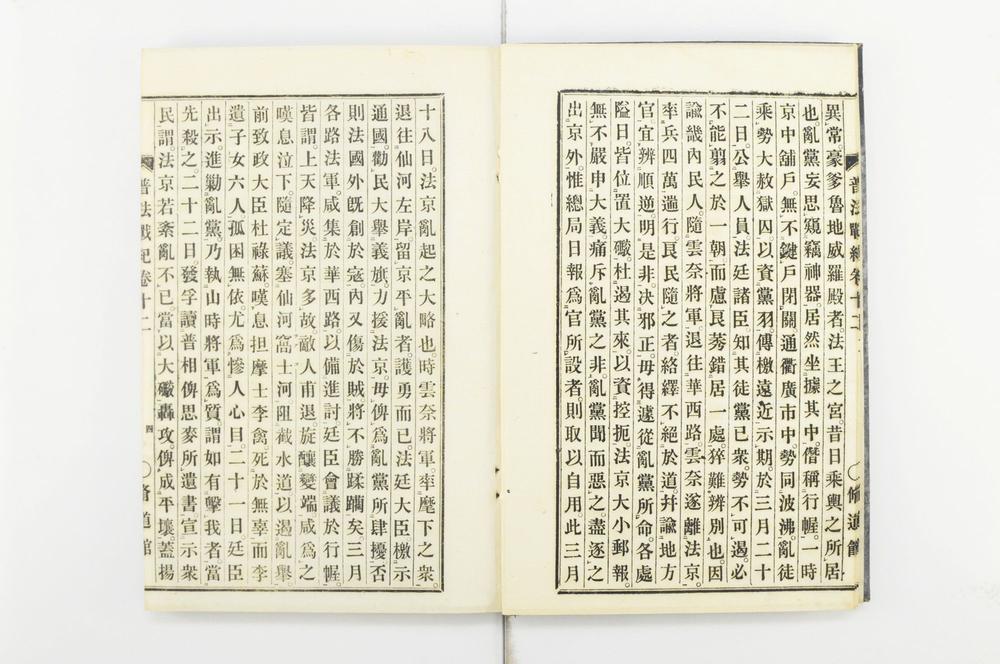 異常豪爹魯地威羅殿者。法王之宮。昔日乘輿之所居
也。亂黨妄思窺竊神器。居然坐據其中。僭稱行幄。一時
京中舖戶。無不鍵戶閉關。通衢廣市中。勢同波沸。亂徒
乘勢大赦獄囚。以資黨羽。傳檄遠近示期。於三月二十
二日。公舉人員。法廷諸臣。知其徒黨已衆。勢不可遏。必
不能翦之於一朝。而慮良莠錯居一處。猝難辨別也。因
諭畿內民人。隨雲奈將軍。退往華西路。雲奈遂離法京。
率兵四萬遄行。良民隨之者。絡繹不絕於道。幷諭地方
官宜辨順逆。明是非。決邪正。毋得遽從亂黨所命。各處
隘口。皆位置大礮。杜遏其來。以資控扼。法京大小郵報。
無不嚴申大義。痛斥亂黨之非。亂黨聞而惡之。盡逐之
出京外。惟總局日報。爲官所設者。則取以自用。此三月
普法戰紀卷十二
脩道館
十八日。法京亂起之大略也。時雲奈將軍。率麾下之衆。
退往仙河左岸。留京平亂者。護勇而已。法廷大臣檄示
通國。勸民大舉義旗。力援法京。毋俾爲亂黨所肆擾。否
則法國外旣創於寇。內又傷於賊。將不勝蹂躪矣。三月
各路法軍。咸集於華西路。以備進討。廷臣會議於行幄。
皆謂。上天降災。法京多故。敵人甫退。旋釀變端。咸爲之
嘆息泣下。隨定議塞仙河窩士河。阻截水道。以遏亂舉。
前致政大臣杜祿蘇。嘆息担摩士李禽死於無辜。而李
遺子女六人。孤困無依。尤爲慘人心目。二十一日。廷臣
出示。進勦亂黨。乃執山時將軍爲質。謂如有擊我者。當
先殺之。二十二日。發孚讀普相俾思麥所遺書。宣示衆
民。謂。法京若紊亂不已。當以大礮轟攻。俾成平壤。蓋揚
普法戰紀卷十二
四
脩道館